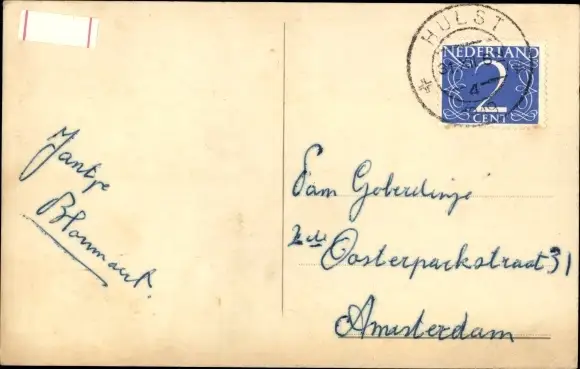 HULST
NEDERLAND
2
CENT
4
Jantje
Blommaert.
Fam Goberdinje
2de Oosterparkstraat 31
Amsterdam